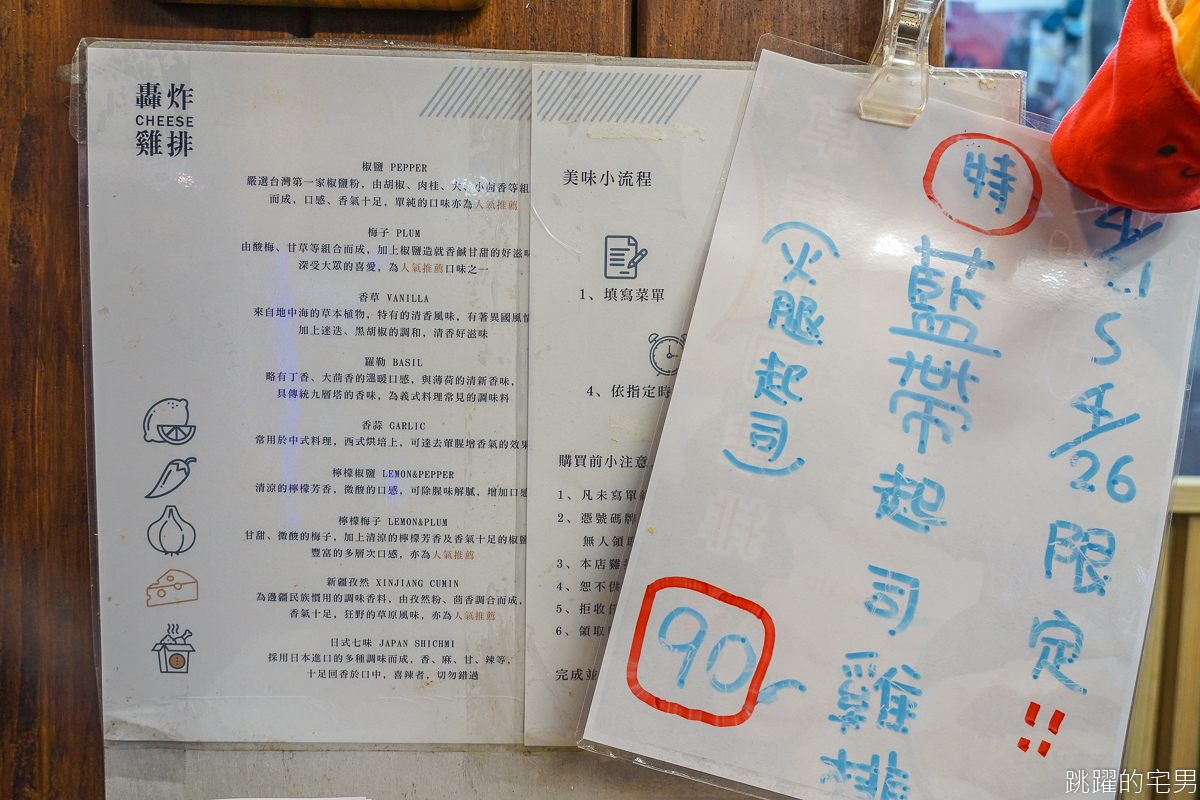 轟炸
CHEESE
雞排
椒鹽 PEPPER
嚴選台灣第一家椒鹽粉，由胡椒、肉桂、大、小茴香等組
而成，口感、香氣十足，單純的口味亦為人氣推薦
梅子 PLUM
由酸梅、甘草等組合而成，加上椒鹽造就香鹹甘甜的好滋味
深受大眾的喜愛，為人氣推薦口味之一
香草 VANILLA
來自地中海的草本植物，特有的清香風味，有著異國風情
加上迷迭、黑胡椒的調和，清香好滋味
羅勒 BASIL
略有丁香、大茴香的溫暖口感，與薄荷的清新香味，
具傳統九層塔的香味，為義式料理常見的調味料
香蒜 GARLIC
常用於中式料理，西式烘培上，可達去葷腥增香氣的效果
檸檬椒鹽 LEMON&PEPPER
清涼的檸檬芳香，微酸的口感，可除腥味解膩，增加口感
檸檬梅子 LEMON&PLUM
甘甜、微酸的梅子，加上清涼的檸檬芳香及香氣十足的椒鹽
豐富的多層次口感，亦為人氣推薦
新疆孜然 XINJIANG CUMIN
為邊疆民族慣用的調味香料，由孜然粉、茴香調合而成，
香氣十足，狂野的草原風味，亦為人氣推薦
日式七味 JAPAN SHICHMI
採用日本進口的多種調味而成，香、麻、甘、辣等，
十足回香於口中，喜辣者，切勿錯過
美味小流程
1、填寫菜單
4、依指定時
購買前小注意
1、凡未寫單
2、憑號碼牌
無人領取
3、本店雞
4、恕不供
5、拒收
6、領取
完成並
S 4/26 限定!!
特
藍帶起司雞排
(火腿起司)
90
跳躍的宅男